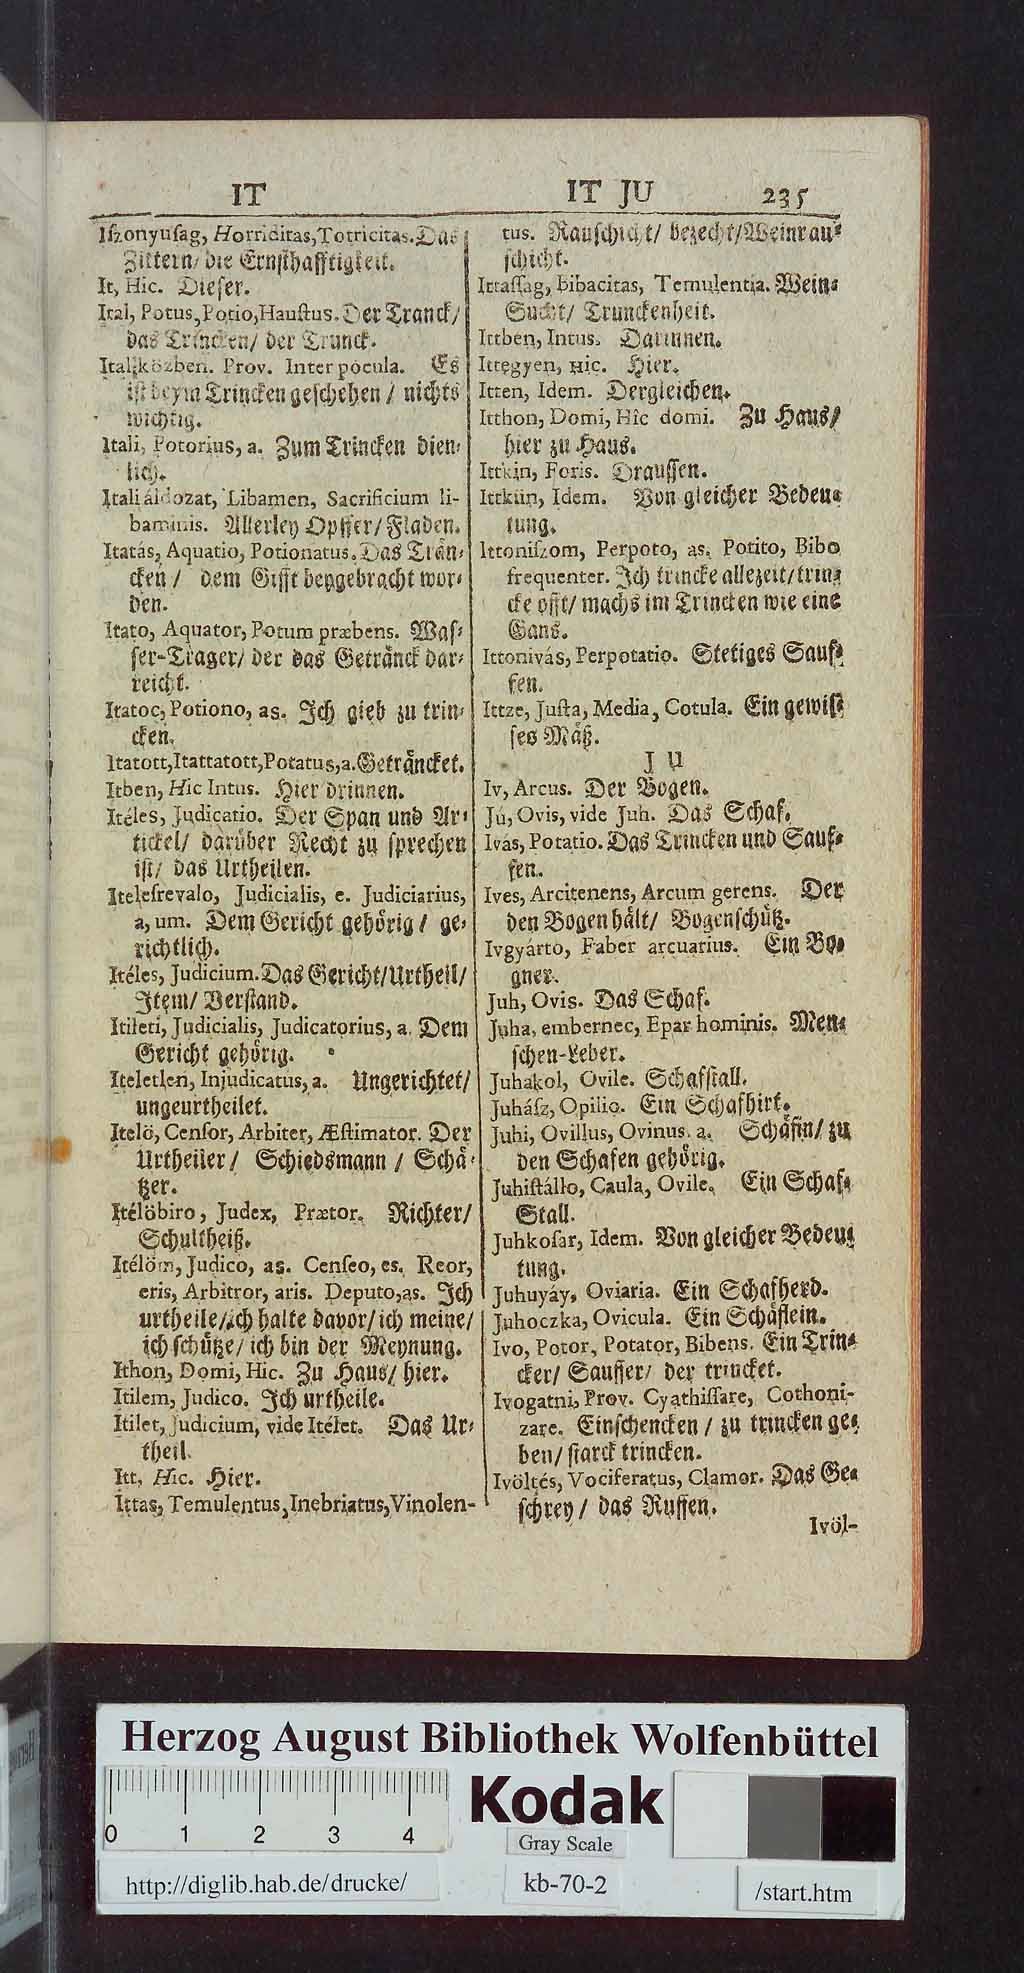 IT
IT JU 235
Iszonyusag, Horriditas, Totricitas. Das
Zittern/ die Ernsthafftigkeit.
It, Hic. Dieser.
Ital, Potus, Potio, Haustus. Der Tranck/
das Trincken/ der Trunck.
Ital közben. Prov. Inter pocula. Es
ist beym Trincken geschehen / nichts
wichtig.
Itali, Potorius, a. Zum Trincken dien-
lich.
Itali áldozat, Libamen, Sacrificium li-
baminis. Allerley Opffer/ Fladen.
Itatás, Aquatio, Potionatus. Das Trän-
cken / dem Gifft beygebracht wor-
den.
Itato, Aquator, Potum præbens. Was-
ser-Trager/ der das Getränck dar-
reicht.
Itatoc, Potiono, as. Ich gieb zu trin-
cken.
Itatott, Itattatott, Potatus, a. Geträncket.
Itben, Hic Intus. Hier drinnen.
Itéles, Judicatio. Der Span und Ar-
tickel/ darüber Recht zu sprechen
ist/ das Urtheilen.
Itelesrevalo, Judicialis, e. Judiciarius,
a, um. Dem Gericht gehörig / ge-
richtlich.
Itéles, Judicium. Das Gericht/ Urtheil/
Item/ Verstand.
Itileti, Judicialis, Judicatorius, a. Dem
Gericht gehörig.
Iteletlen, Injudicatus, a. Ungerichtet/
ungeurtheilet.
Itelö, Censor, Arbiter, Æstimator. Der
Urtheiler / Schiedsmann / Schä-
tzer.
Itélöbiro, Judex, Prætor. Richter/
Schultheiß.
Itélöm, Judico, as. Censeo, es. Reor,
eris, Arbitror, aris. Deputo, as. Ich
urtheile/ ich halte davor/ ich meine/
ich schütze/ ich bin der Meynung.
Ithon, Domi, Hic. Zu Haus/ hier.
Itilem, Judico. Ich urtheile.
Itilet, Judicium, vide Itélet. Das Ur-
theil.
Itt, Hic. Hier.
Ittas, Temulentus, Inebriatus, Vinolen-
tus. Rauschicht/ bezecht/ Weinrau-
schicht.
Ittassag, Bibacitas, Temulentia. Wein-
Sucht/ Trunckenheit.
Ittben, Intus. Darinnen.
Ittegyen, Hic. Hier.
Itten, Idem. Dergleichen.
Itthon, Domi, Hîc domi. Zu Haus/
hier zu Haus.
Ittkin, Foris. Draussen.
Ittkün, Idem. Von gleicher Bedeu-
tung.
Ittoniszom, Perpoto, as. Potito, Bibo
frequenter. Ich trincke allezeit/ trin-
cke offt/ machs im Trincken wie eine
Gans.
Ittonivás, Perpotatio. Stetiges Sauf-
fen.
Ittze, Justa, Media, Cotula. Ein gewis-
ses Mäß.
J U
Iv, Arcus. Der Bogen.
Jú, Ovis, vide Juh. Das Schaf.
Ivás, Potatio. Das Trincken und Sauf-
fen.
Ives, Arcitenens, Arcum gerens. Der
den Bogen hält/ Bogenschütz.
Ivgyárto, Faber arcuarius. Ein Bo-
gner.
Juh, Ovis. Das Schaf.
Juha, embernec, Epar hominis. Men-
schen-Leber.
Juhakol, Ovile. Schafstall.
Juhász, Opilio. Ein Schafhirt.
Juhi, Ovillus, Ovinus. a. Schäfin/ zu
den Schafen gehörig.
Juhistállo, Caula, Ovile. Ein Schaf-
Stall.
Juhkosar, Idem. Von gleicher Bedeu-
tung.
Juhuyáy, Oviaria. Ein Schafherd.
Juhoczka, Ovicula. Ein Schäflein.
Ivo, Potor, Potator, Bibens. Ein Trin-
cker/ Sauffer/ der trincket.
Ivogatni, Prov. Cyathissare, Cothoni-
zare. Einschencken / zu trincken ge-
ben/ starck trincken.
Ivöltés, Vociferatus, Clamor. Das Ge-
schrey / das Ruffen.
Ivöl-
Herzog August Bibliothek Wolfenbüttel
0 1 2 3 4
Kodak
Gray Scale
http://diglib.hab.de/drucke/
kb-70-2
/start.htm